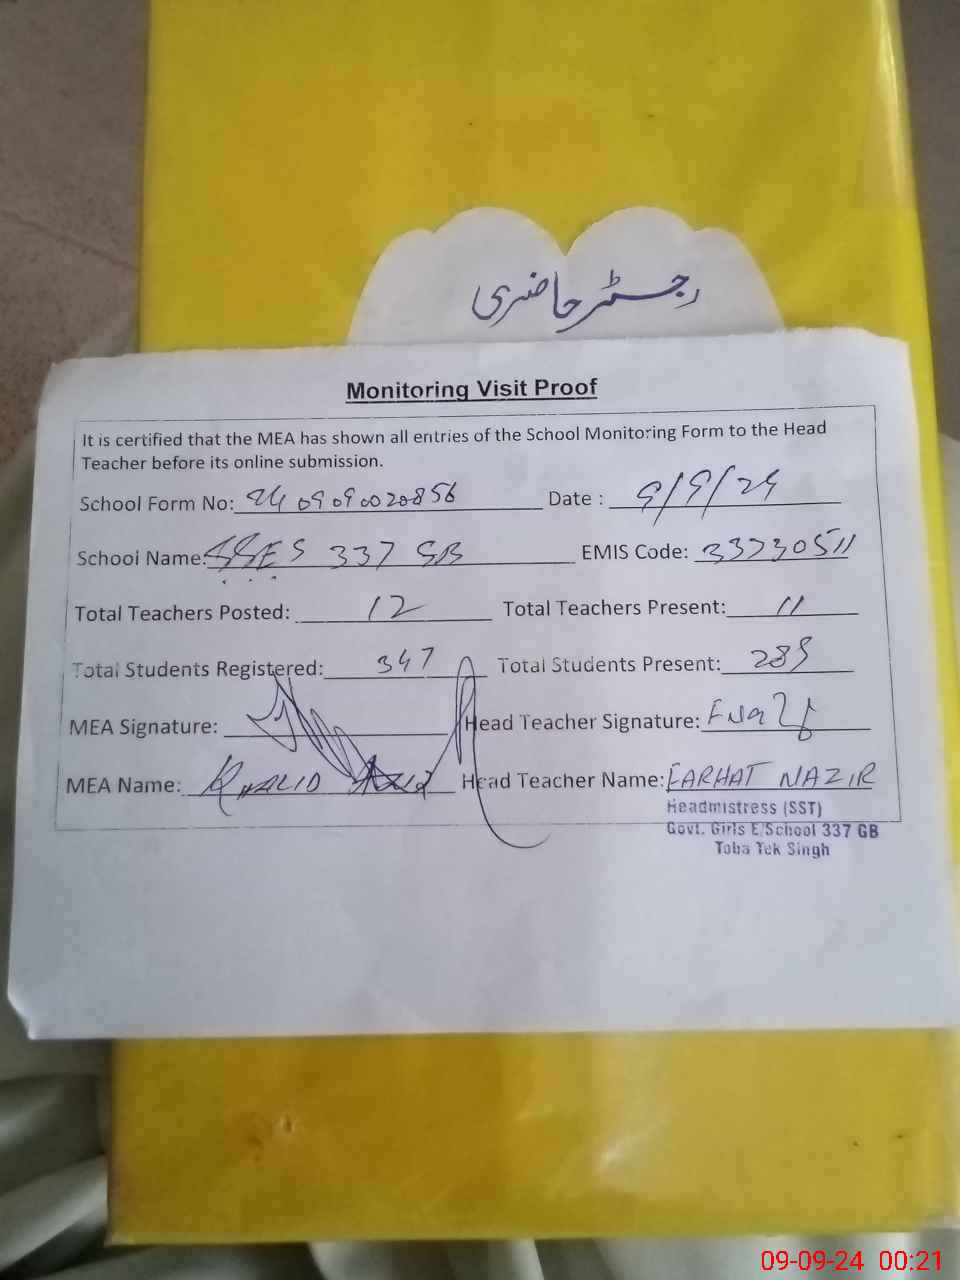 رجسٹر حاضری
Monitoring Visit Proof
It is certified that the MEA has shown all entries of the School Monitoring Form to the Head
Teacher before its online submission.
School Form No: 24 09 09 0020856 Date : 9/9/24
School Name: GGES 337 GB EMIS Code: 33230511
Total Teachers Posted: 12 Total Teachers Present: 11
Total Students Registered: 347 Total Students Present: 289
MEA Signature: Head Teacher Signature:
MEA Name: KHALID AZIZ Head Teacher Name: FARHAT NAZIR
Headmistress (SST)
Govt. Girls E/School 337 GB
Toba Tek Singh
09-09-24 00:21